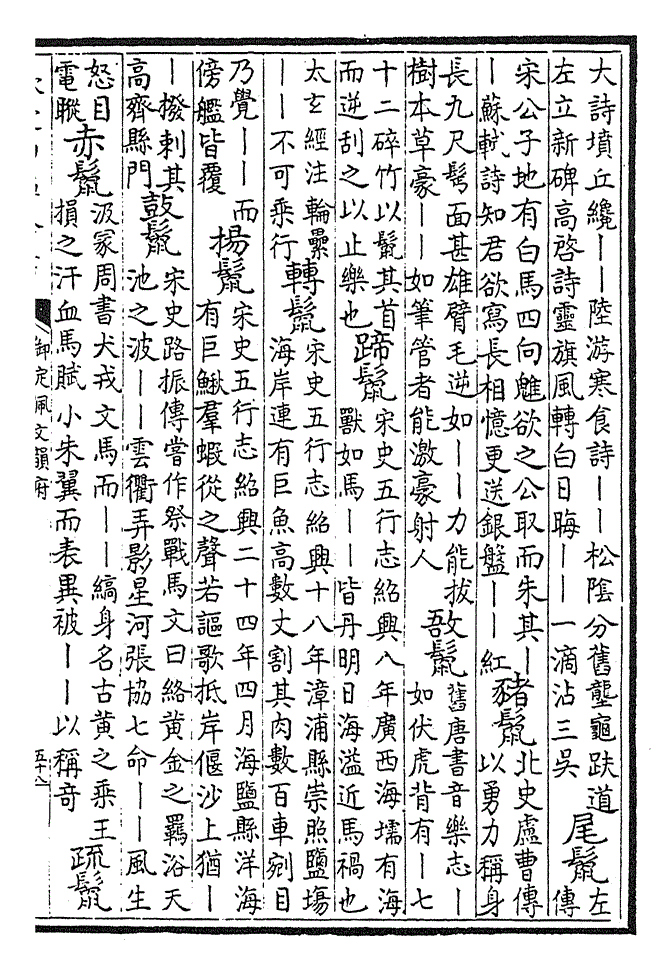 大詩墳丘纔——陸游寒食詩——松陰分舊壟龜趺道
左立新碑高啓詩靈旗風轉白日晦——一滴沾三吳
尾鬣
左
傳
宋公子地有白馬四向魋欲之公取而朱其—
—蘇軾詩知君欲寫長相憶更送銀盤——紅
豬鬣
北史盧曹傳
以勇力稱身
長九尺髩面甚雄臂毛逆如——力能拔
樹本草豪——如筆管者能激豪射人
敔鬣
舊唐書音樂志—
如伏虎背有—七
十二碎竹以鬣其首
而逆刮之以止樂也
蹄鬣
宋史五行志紹興八年廣西海壖有海
獸如馬——皆丹明日海溢近馬禍也
太玄經注輪纍
——不可乘行
轉鬣
宋史五行志紹興十八年漳浦縣崇照鹽塲
海岸連有巨魚高數丈割其肉數百車剜目
乃覺——而
傍艦皆覆
揚鬣
宋史五行志紹興二十四年四月海鹽縣洋海
有巨鰍羣蝦從之聲若謳歌抵岸偃沙上猶—
—撥剌其
高齊縣門
鼓鬣
宋史路振傳嘗作祭戰馬文曰絡黃金之羈浴天
池之波——雲衢弄影星河張協七命——風生
怒目
電瞛
赤鬣
汲冢周書犬戎文馬而——縞身名古黄之乘王
損之汗血馬賦小朱翼而表異被——以稱奇
疏鬣
御定佩文韻府
五十八